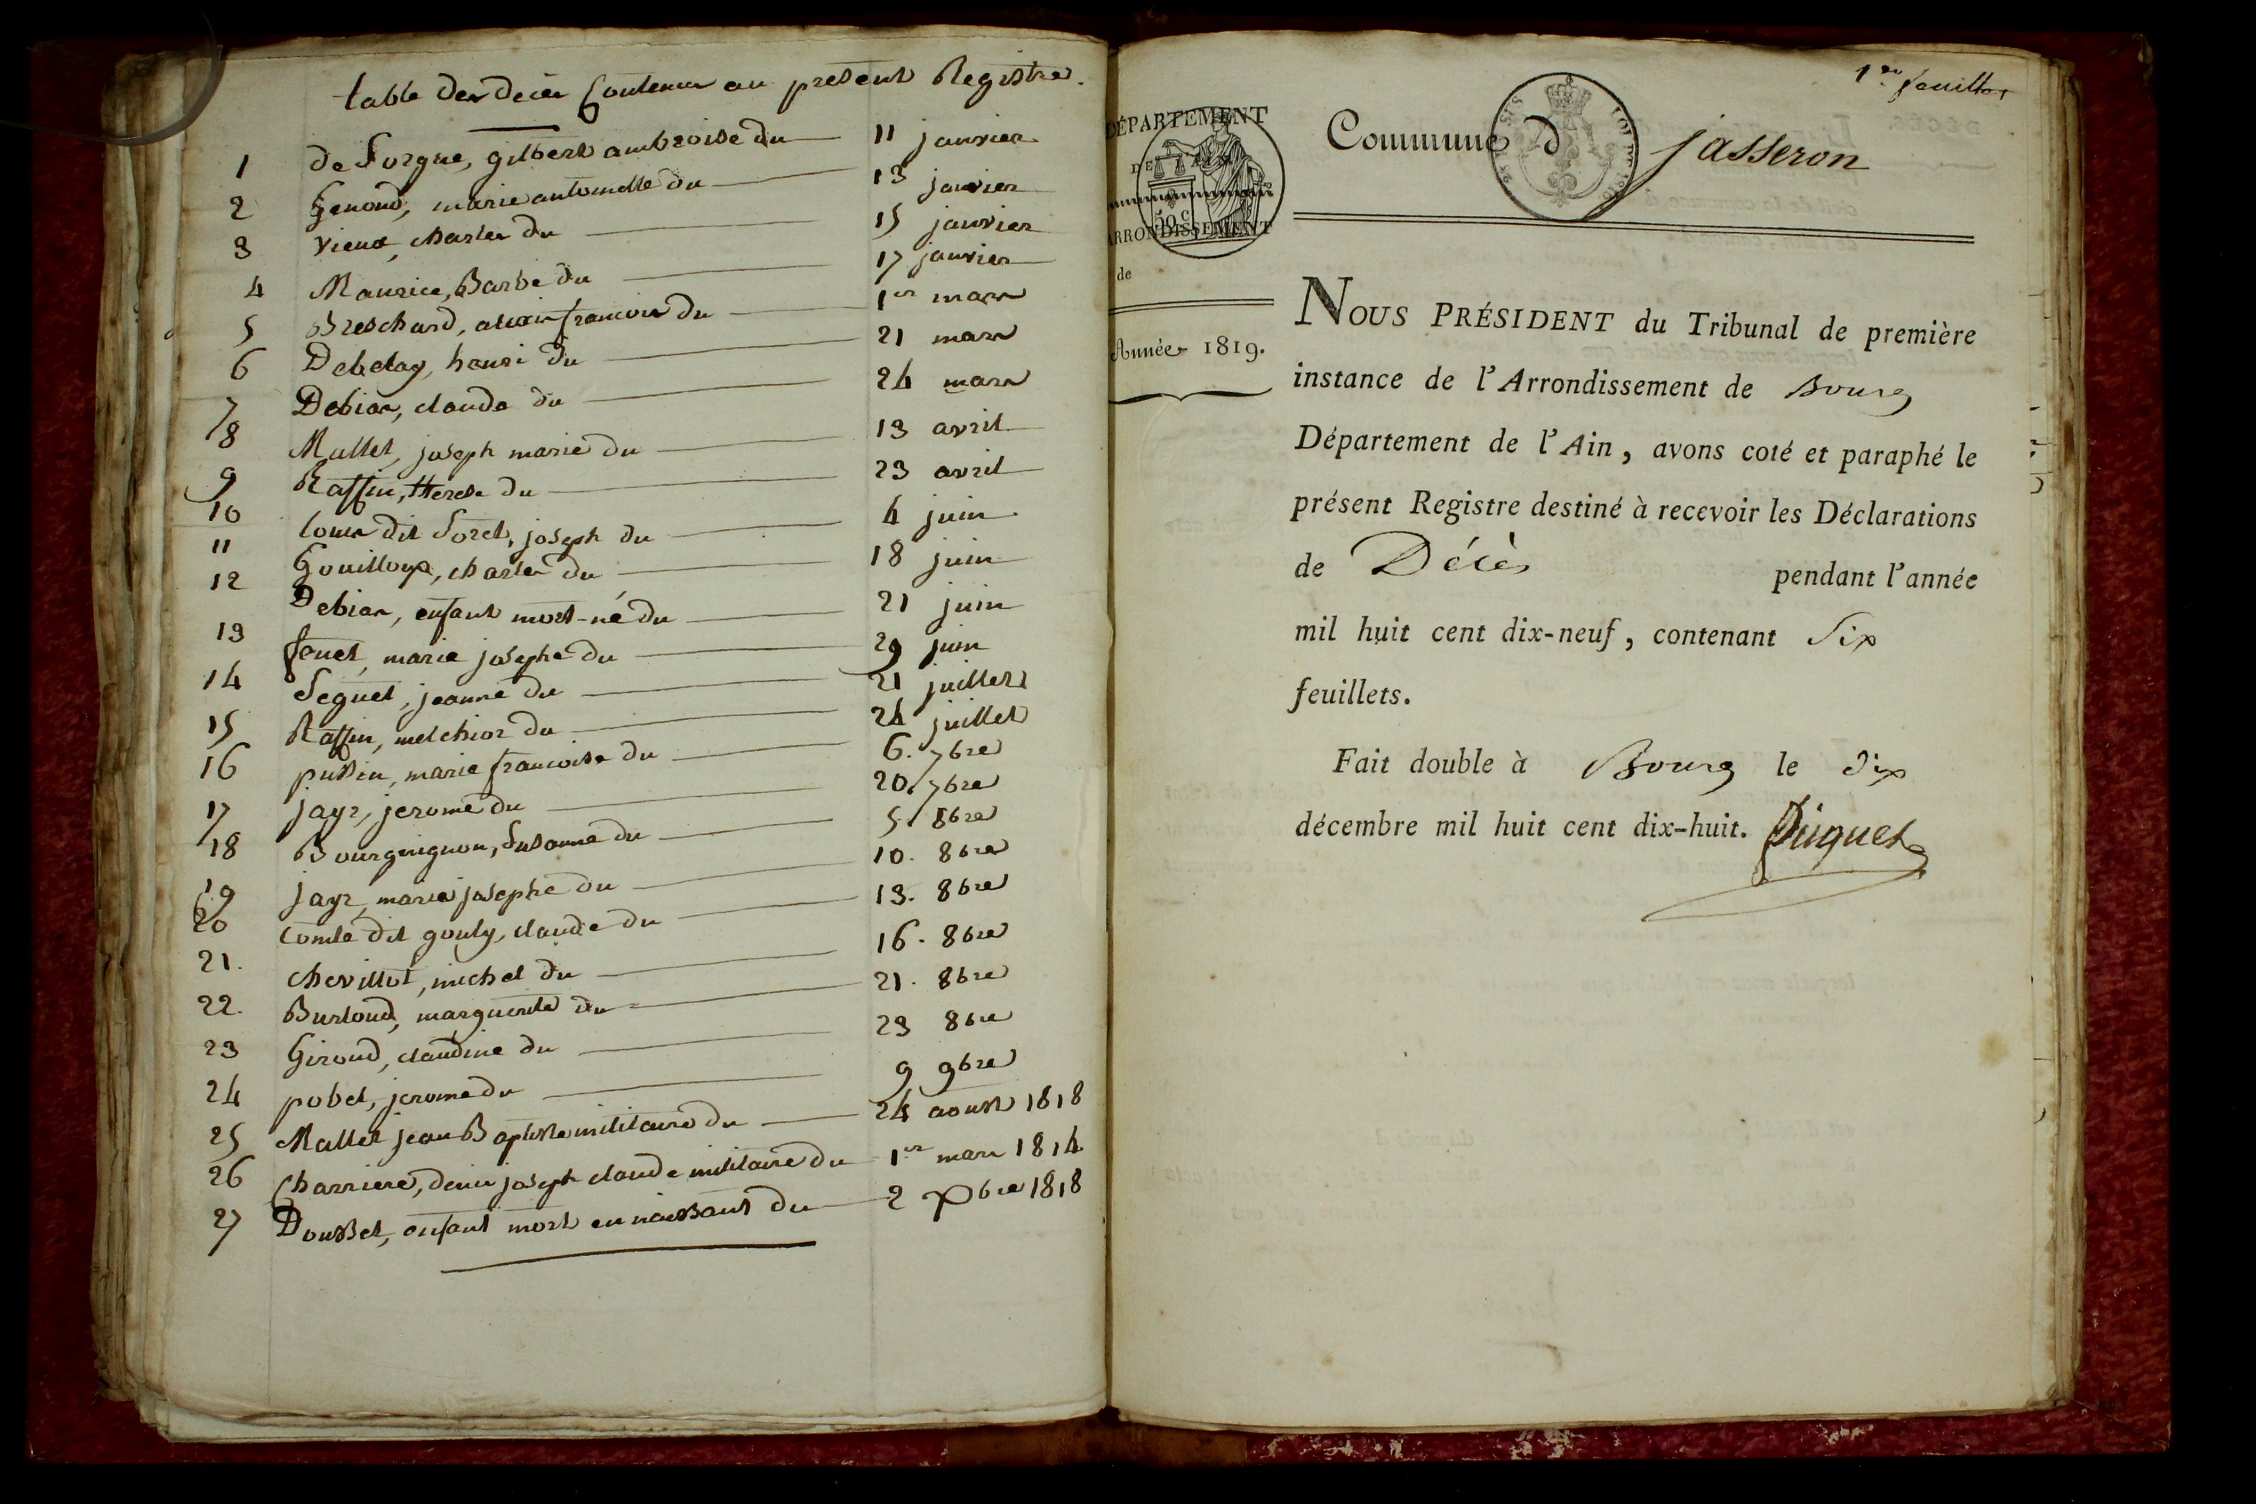 table des décès Contenus au présent Registre.
1 de Forgue, gilbert ambroise du 11 janvier
2 Genoud, marie antoinette du 13 janvier
3 Vieux, charles du 15 janvier
4 Maurice, Barbe du 17 janvier
5 Breschard, françois du 1er mars
6 Debelay, henri du 21 mars
7 Debias, claude du 24 mars
8 Mallet, joseph marie du 13 avril
9 Raffin, therese du 23 avril
10 Comte dit Foret, joseph du 4 juin
11 Gouilloux, charles du 18 juin
12 Debias, enfant mort-né du 21 juin
13 fenet, marie josephe du 29 juin
14 Seguet, jeanne du 21 juillet
15 Raffin, melchior du 24 juillet
16 putin, marie françoise du 6. 7bre
17 jayr, jerome du 20. 7bre
18 Bourguignon, Susanne du 5. 8bre
19 jayr, marie josephe du 10. 8bre
20 Comte dit gouly, claude du 13. 8bre
21. chevillot, michel du 16. 8bre
22. Burtoud, marguerite du 21. 8bre
23 Giroud, claudine du 23 8bre
24 pobel, jerome du 9 9bre
25 Mallet jean Baptiste militaire du 24 aoust 1818
26 Charriere, denis joseph claude militaire du 1er mars 1814
27 Dousset, enfant mort en naissant du 2 Xbre 1818
1er feuillet
DÉPARTEMENT
DE L'AIN
50 c
ARRONDISSEMENT
de
Année 1819.
Commune d jasseron
NOUS PRÉSIDENT du Tribunal de première
instance de l'Arrondissement de Bourg
Département de l'Ain, avons coté et paraphé le
présent Registre destiné à recevoir les Déclarations
de Décès pendant l'année
mil huit cent dix-neuf, contenant Six
feuillets.
Fait double à Bourg le dix
décembre mil huit cent dix-huit. Piquet